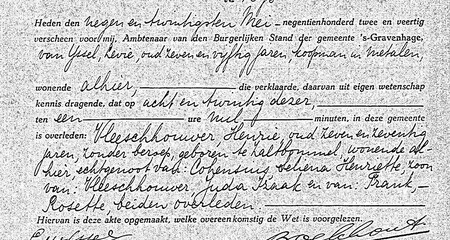 Heden den negen en twintigsten Mei – negentienhonderd twee en veertig
verscheen voor mij, Ambtenaar van den Burgerlijken Stand der gemeente 's-Gravenhage,
van IJssel, Levie, oud zeven en vijftig jaren, koopman in metalen,
wonende alhier, die verklaarde, daarvan uit eigen wetenschap
kennis dragende, dat op acht en twintig dezer,
ten een ure nul minuten, in deze gemeente
is overleden: Vleeschhouwer, Henrie, oud zeven en zeventig
jaren, zonder beroep, geboren te Zaltbommel, wonende al-
hier echtgenoot van: Cohensius, Henriette, zoon
van: Vleeschhouwer, Juda Izaak en van: Frank,–
Rosette beiden overleden
Hiervan is deze akte opgemaakt, welke overeenkomstig de Wet is voorgelezen.